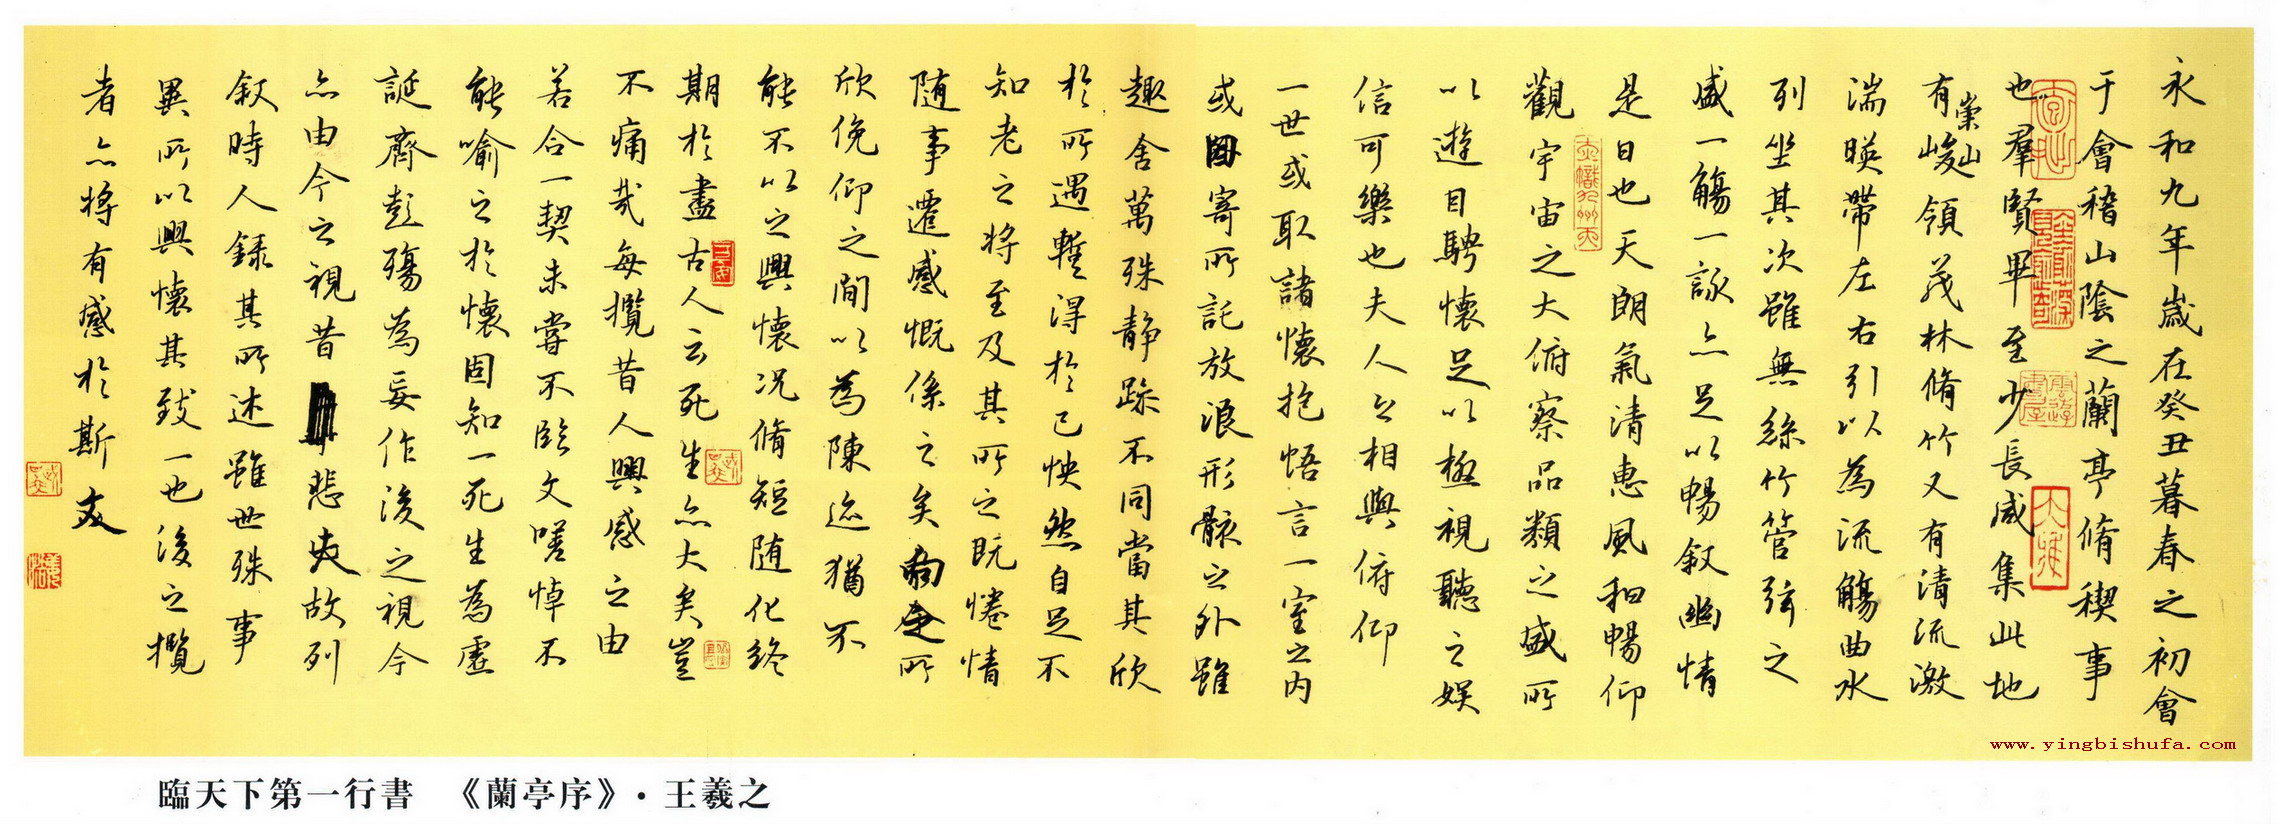 永和九年歲在癸丑暮春之初會
于會稽山陰之蘭亭脩稧事
也羣賢畢至少長咸集此地
有崇山峻領茂林脩竹又有清流激
湍暎帶左右引以為流觴曲水
列坐其次雖無絲竹管弦之
盛一觴一詠亦足以暢敘幽情
是日也天朗氣清惠風和暢仰
觀宇宙之大俯察品類之盛所
以遊目騁懷足以極視聽之娛
信可樂也夫人之相與俯仰
一世或取諸懷抱悟言一室之內
或因寄所託放浪形骸之外雖
趣舍萬殊靜躁不同當其欣
於所遇暫得於己怏然自足不
知老之將至及其所之既惓情
隨事遷感慨係之矣向之所
欣俛仰之間以為陳迹猶不
能不以之興懷況脩短隨化終
期於盡古人云死生亦大矣豈
不痛哉每攬昔人興感之由
若合一契未嘗不臨文嗟悼不
能喻之於懷固知一死生為虛
誕齊彭殤為妄作後之視今
亦由今之視昔悲夫故列
敘時人錄其所述雖世殊事
異所以興懷其致一也後之攬
者亦將有感於斯文
www.yingbishufa.com
臨天下第一行書 《蘭亭序》·王羲之